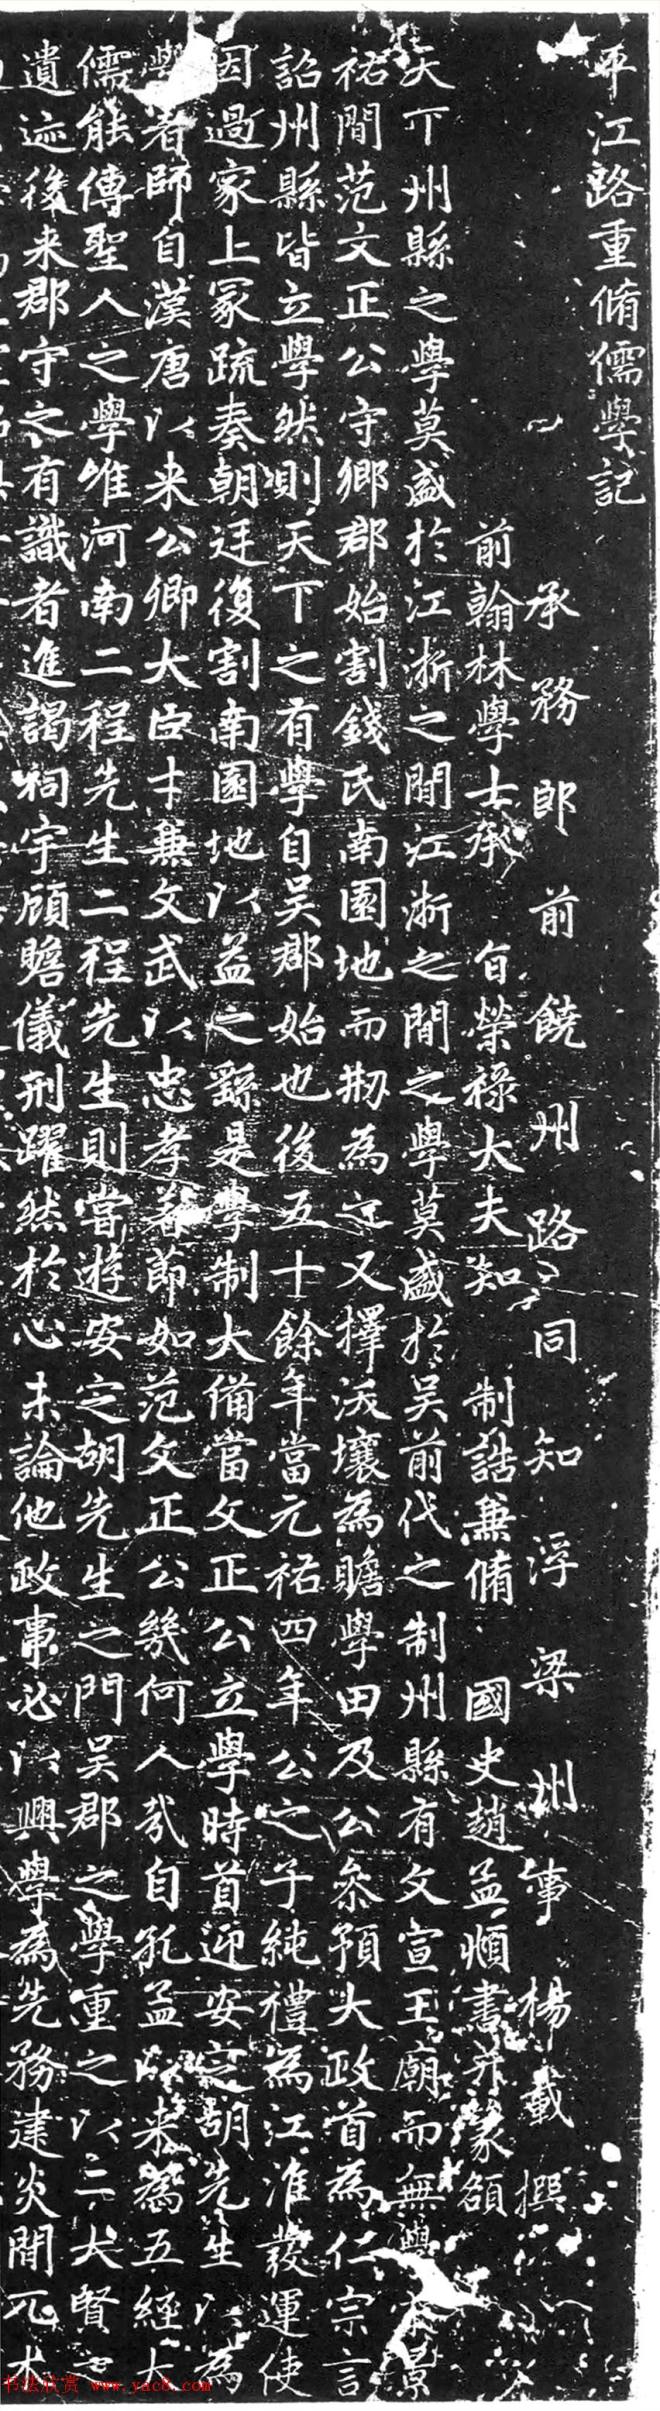 平江路重脩儒學記
承務郎前饒州路同知浮梁州事楊載撰
前翰林學士承旨榮祿大夫知制誥兼脩國史趙孟頫書并篆額
天下州縣之學莫盛於江浙之間江浙之間之學莫盛於吳前代之制州縣有文宣王廟而無學宋景
祐間范文正公守鄉郡始割錢氏南園地而刱為之又擇沃壤為贍學田及公叅預大政首為仁宗言
詔州縣皆立學然則天下之有學自吳郡始也後五十餘年當元祐四年公之子純禮為江淮發運使
因過家上冢疏奏朝廷復割南園地以益之繇是學制大備當文正公立學時首迎安定胡先生以為
學者師自漢唐以来公卿大臣才兼文武以忠孝著節如范文正公幾何人哉自孔孟以来為五經大
儒能傳聖人之學唯河南二程先生二程先生則嘗遊安定胡先生之門吳郡之學重之以二大賢之
遺迹後来郡守之有識者進謁祠宇顧瞻儀刑躍然於心未論他政事必以興學為先務建炎間兀朮
书法欣赏 www.yac8.com